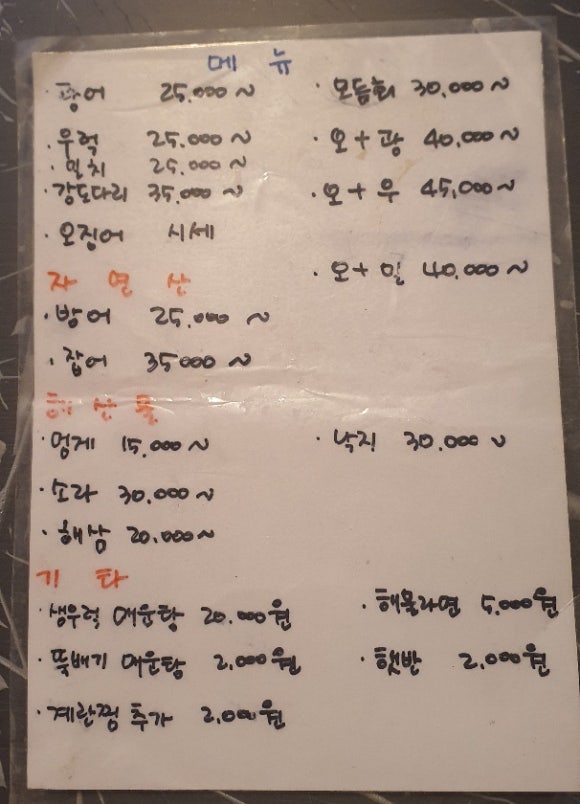 메 뉴
· 광어 25.000 ~
· 모듬회 30.000 ~
· 우럭 25.000 ~
· 오 + 광 40.000 ~
· 밀치 25.000 ~
· 강도다리 35.000 ~
· 오 + 우 45.000 ~
· 오징어 시세
· 오 + 밀 40.000 ~
자 연 산
· 방어 25.000 ~
· 잡어 35000 ~
해 산 물
· 멍게 15.000 ~
· 낙지 30.000 ~
· 소라 30.000 ~
· 해삼 20.000 ~
기 타
· 생우럭 매운탕 20.000원
· 해물라면 5.000원
· 뚝배기 매운탕 2.000원
· 햇반 2.000원
· 계란찜 추가 2.000원